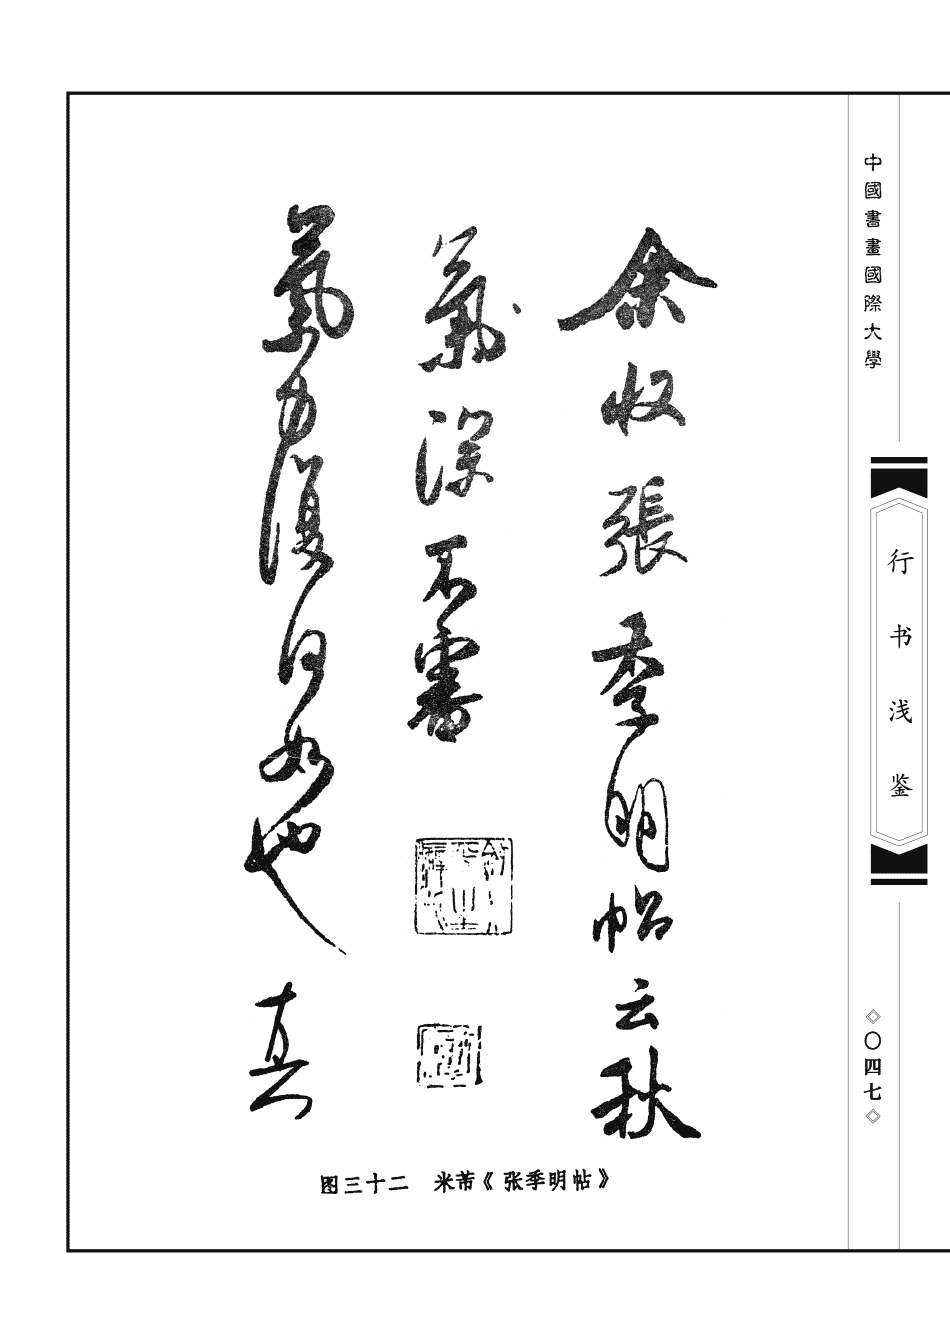 中國書畫國際大學
行书浅鉴
〇四七
余收張季明帖云秋
氣深不審
氣力復何如也真
图三十二 米芾《张季明帖》